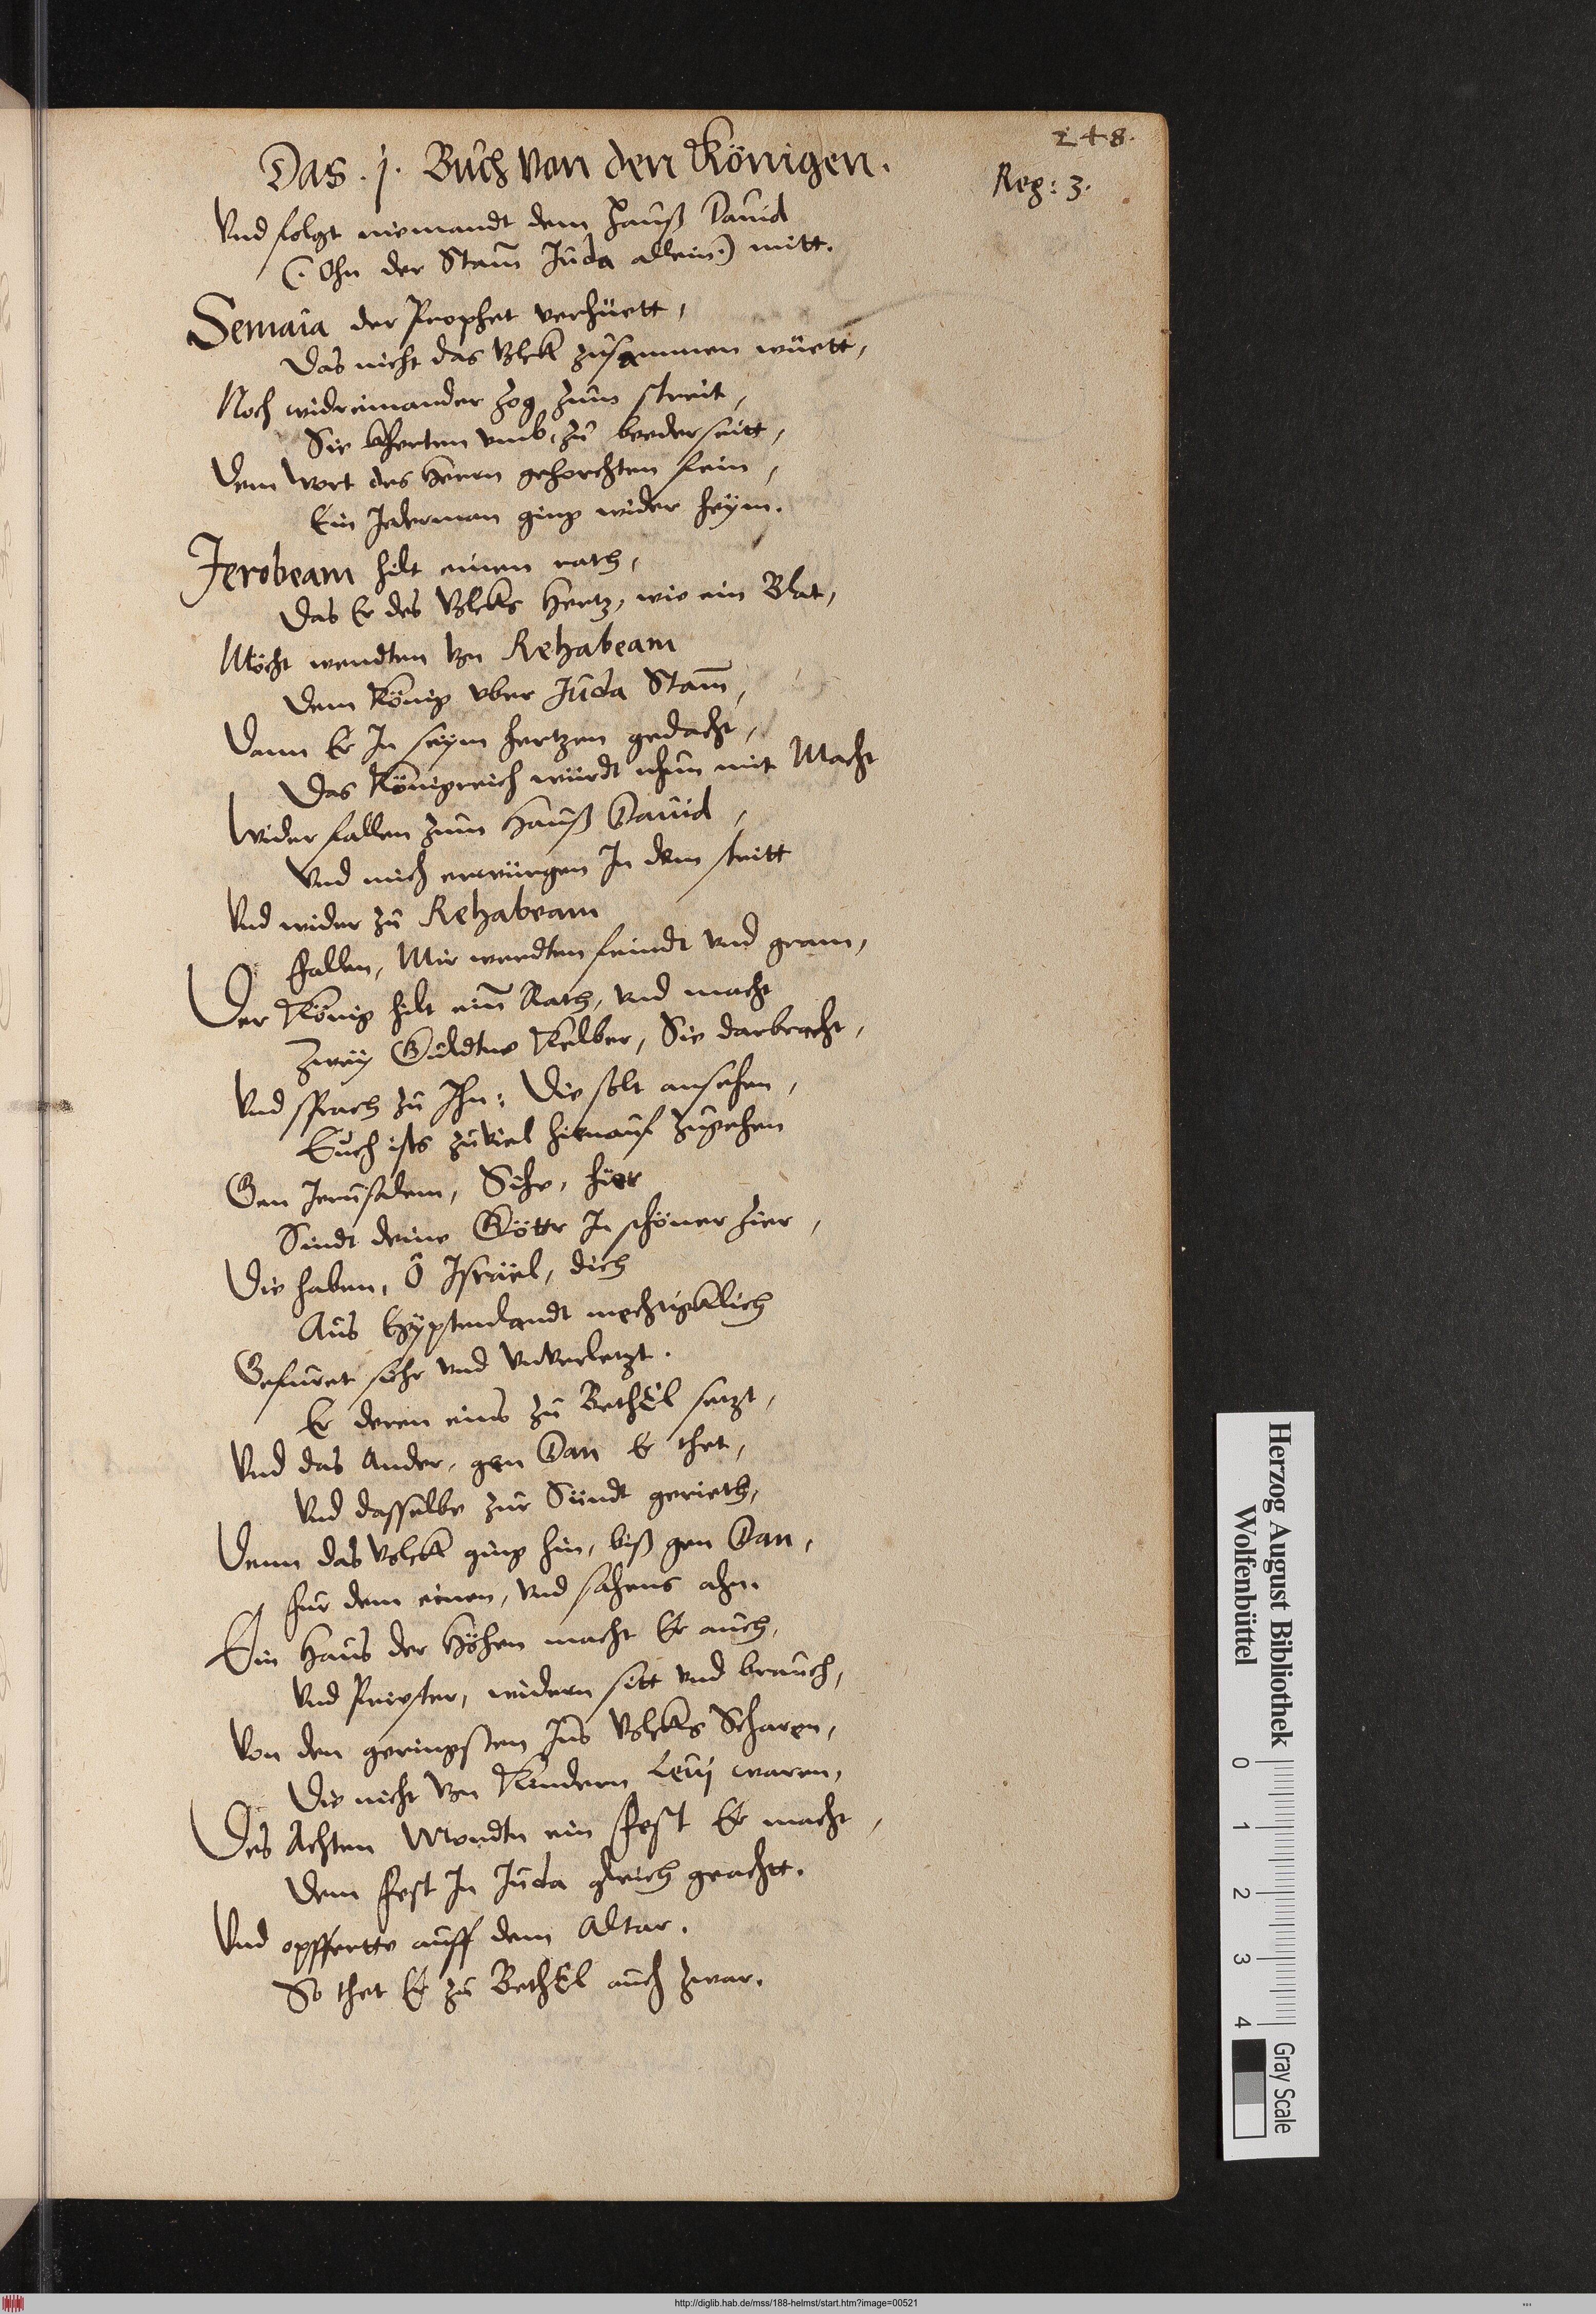 248.
Das .j. Buch Von den Königen.
Reg: 3.
Vnd folgt niemandt dem Hauß Dauid
(: Ohn der Stam̄ Juda allein:) mitt.
Semaia der Prophet verhüett,
Das nicht das Volck zusammen wüett,
Noch widreinander zog zum streit,
Sie kherten vmb, zu beederseitt,
Dem Wort des Herrn gehorchten fein,
Ein Jederman ging wider heÿm.
Jerobeam hilt einen rath,
Das Er des Volcks Hertz, wie ein Blat,
Möcht wendten von Rehabeam
Dem König vber Juda Stam̄,
Dann Er In seÿm hertzen gedacht,
Das Königreich würdt nhun mit Macht
Wider fallen zum Hauß Dauid,
Vnd mich erwürgen In dem tritt
Vnd wider zu Rehabeam
fallen, Mir werdten feindt vnd gram,
Der König hilt ein̄ Rath, vnd macht
Zweÿ Güldtne Kelber, Sie darbracht,
Vnd sprach zu Ihn: Die solt ansehen,
Euch ists zuviel hienauf zugehen
Gen Jerusalem, Sihe, hier
Sindt deine Götter In schöner Zier,
Die haben, Ô Israël, dich
Aus Egÿptenlandt mechtigklich
Gefüret sehr vnd vnverletzt.
Er deren eins zu BethEl setzt,
Vnd das Ander, gen Dan Er thet,
Vnd dasselbe zur Sündt gerieth,
Denn das Volck ging hin, biß gen Dan,
für dem einen, vnd sahens ahn.
Ein Haus der Höhen macht Er auch,
Vnd Priester, widern sitt vnd brauch,
Von den geringsten Ins Volcks Scharen,
Die nicht von Kindern Leuj waren,
Des Achten Mondtn ein fest Er macht,
Dem fest In Juda gleich geachtt.
Vnd opffertte auff dem Altar.
So thet Er zu BethEl auch zwar.
Herzog August Bibliothek
Wolfenbüttel
0 1 2 3 4
Gray Scale
http://diglib.hab.de/mss/188-helmst/start.htm?image=00521